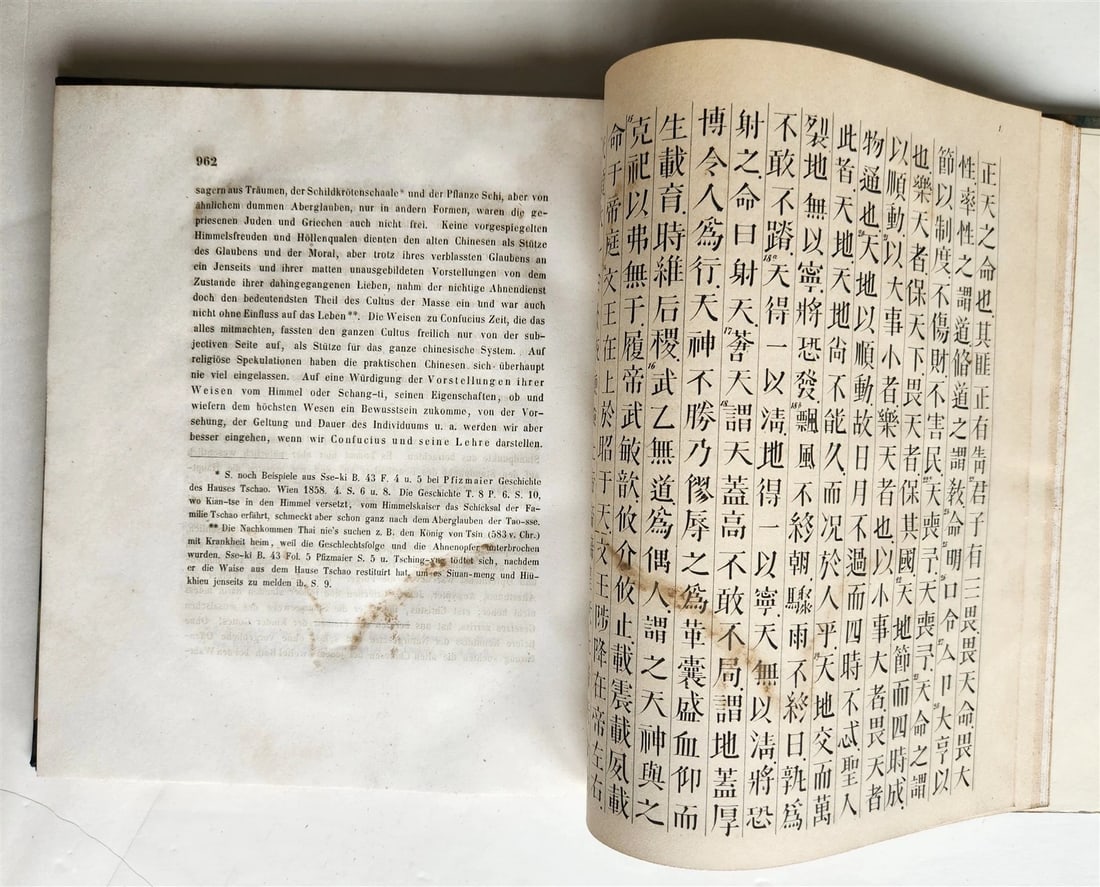 962
sagern aus Träumen, der Schildkrötenschaale* und der Pflanze Schi, aber von
ähnlichem dummen Aberglauben, nur in andern Formen, waren die ge-
priesenen Juden und Griechen auch nicht frei. Keine vorgespiegelten
Himmelsfreuden und Höllenqualen dienten den alten Chinesen als Stütze
des Glaubens und der Moral, aber trotz ihres verblassten Glaubens an
ein Jenseits und ihrer matten unausgebildeten Vorstellungen von dem
Zustande ihrer dahingegangenen Lieben, nahm der nichtige Ahnendienst
doch den bedeutendsten Theil des Cultus der Masse ein und war auch
nicht ohne Einfluss auf das Leben**. Die Weisen zu Confucius Zeit, die das
alles mitmachten, fassten den ganzen Cultus freilich nur von der sub-
jectiven Seite auf, als Stütze für das ganze chinesische System. Auf
religiöse Spekulationen haben die praktischen Chinesen sich überhaupt
nie viel eingelassen. Auf eine Würdigung der Vorstellungen ihrer
Weisen vom Himmel oder Schang-ti, seinen Eigenschaften, ob und
wiefern dem höchsten Wesen ein Bewusstsein zukomme, von der Vor-
sehung, der Geltung und Dauer des Individuums u. a. werden wir aber
besser eingehen, wenn wir Confucius und seine Lehre darstellen.
* S. noch Beispiele aus Sse-ki B. 43 F. 4 u. 5 bei Pfizmaier Geschichte
des Hauses Tschao. Wien 1858. 4. S. 6 u. 8. Die Geschichte T. 8 P. 6. S. 10,
wo Kian-tse in den Himmel versetzt, vom Himmelskaiser das Schicksal der Fa-
milie Tschao erfährt, schmeckt aber schon ganz nach dem Aberglauben der Tao-sse.
** Die Nachkommen Thai nie's suchen z. B. den König von Tsin (583 v. Chr.)
mit Krankheit heim, weil die Geschlechtsfolge und die Ahnenopfer unterbrochen
wurden. Sse-ki B. 43 Fol. 5 Pfizmaier S. 5 u. Tsching-yng tödtet sich, nachdem
er die Waise aus dem Hause Tschao restituirt hat, um es Siuan-meng und Hiü-
khieu jenseits zu melden ib. S. 9.
1
正天之命也其匪正有眚君子有三畏畏天命畏大
性率性之謂道脩道之謂敎命明口令人卩大亨以
節以制度不傷財不害民天喪予天喪予天命之謂
也樂天者保天下畏天者保其國天地節而四時成
以順動以大事小者樂天者也以小事大者畏天者
物通也天地以順動故日月不過而四時不忒聖人
此者天地天地尙不能久而况於人乎天地交而萬
裂地無以寧將恐發飄風不終朝驟雨不終日孰爲
不敢不蹐天得一以淸地得一以寧天無以淸將恐
射之命曰射天荅天謂天蓋高不敢不局謂地蓋厚
博令人爲行天神不勝乃僇辱之爲革囊盛血仰而
生載育時維后稷武乙無道爲偶人謂之天神與之
克祀以弗無子履帝武敏歆攸介攸止載震載夙載
命于帝庭文王在上於昭于天文王陟降在帝左右